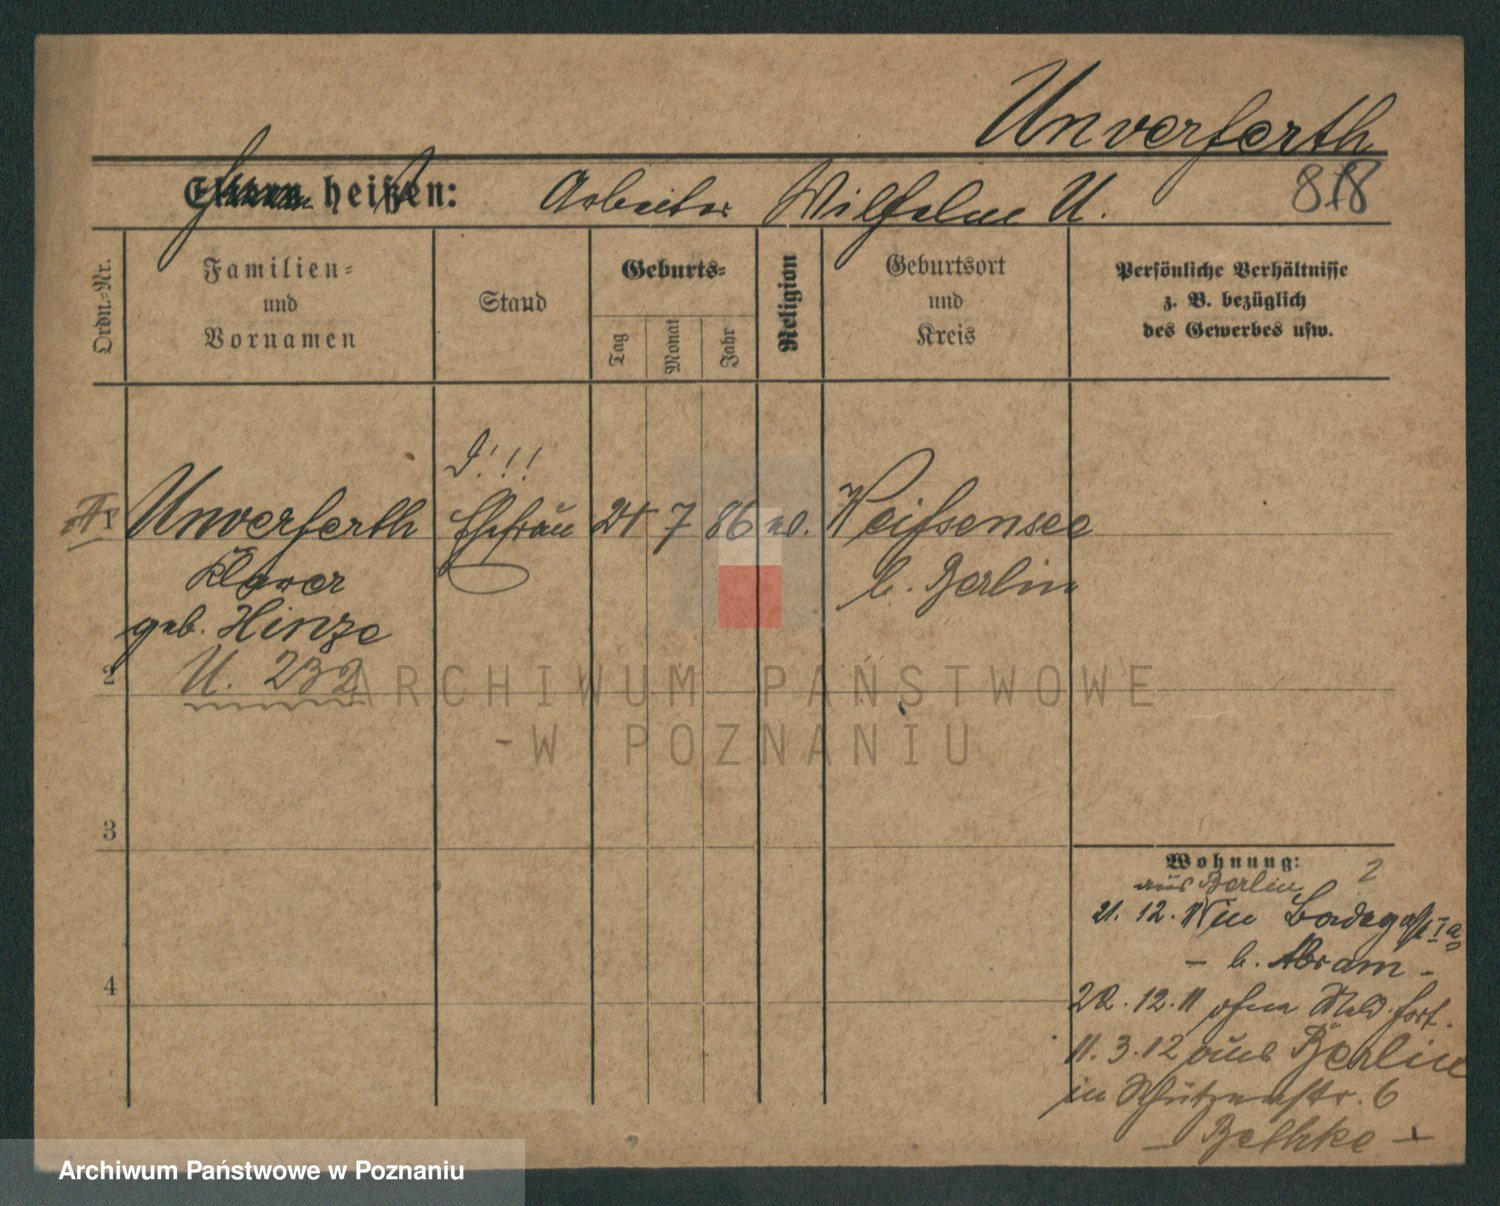 Unverferth
Eltern heißen: Arbeiter Wilhelm U. 818
Ordn.-Nr.
Familien-
und
Vornamen
Stand
Geburts-
Tag
Monat
Jahr
Religion
Geburtsort
und
Kreis
Persönliche Verhältnisse
z. B. bezüglich
des Gewerbes usw.
D.!!
1 Unverferth Ehefrau 24 7 86 ev. Weißensee
b. Berlin
geb. Hinze
2 U. 232
ARCHIWUM PAŃSTWOWE
W POZNANIU
3
Wohnung: 2
aus Berlin
21. 12. 11 in
4
- b. Abram -
22. 12. 11 ohne Meld. fort.
11. 3. 12 aus Berlin
in Schützenstr. 6
- Bethke -
Archiwum Państwowe w Poznaniu